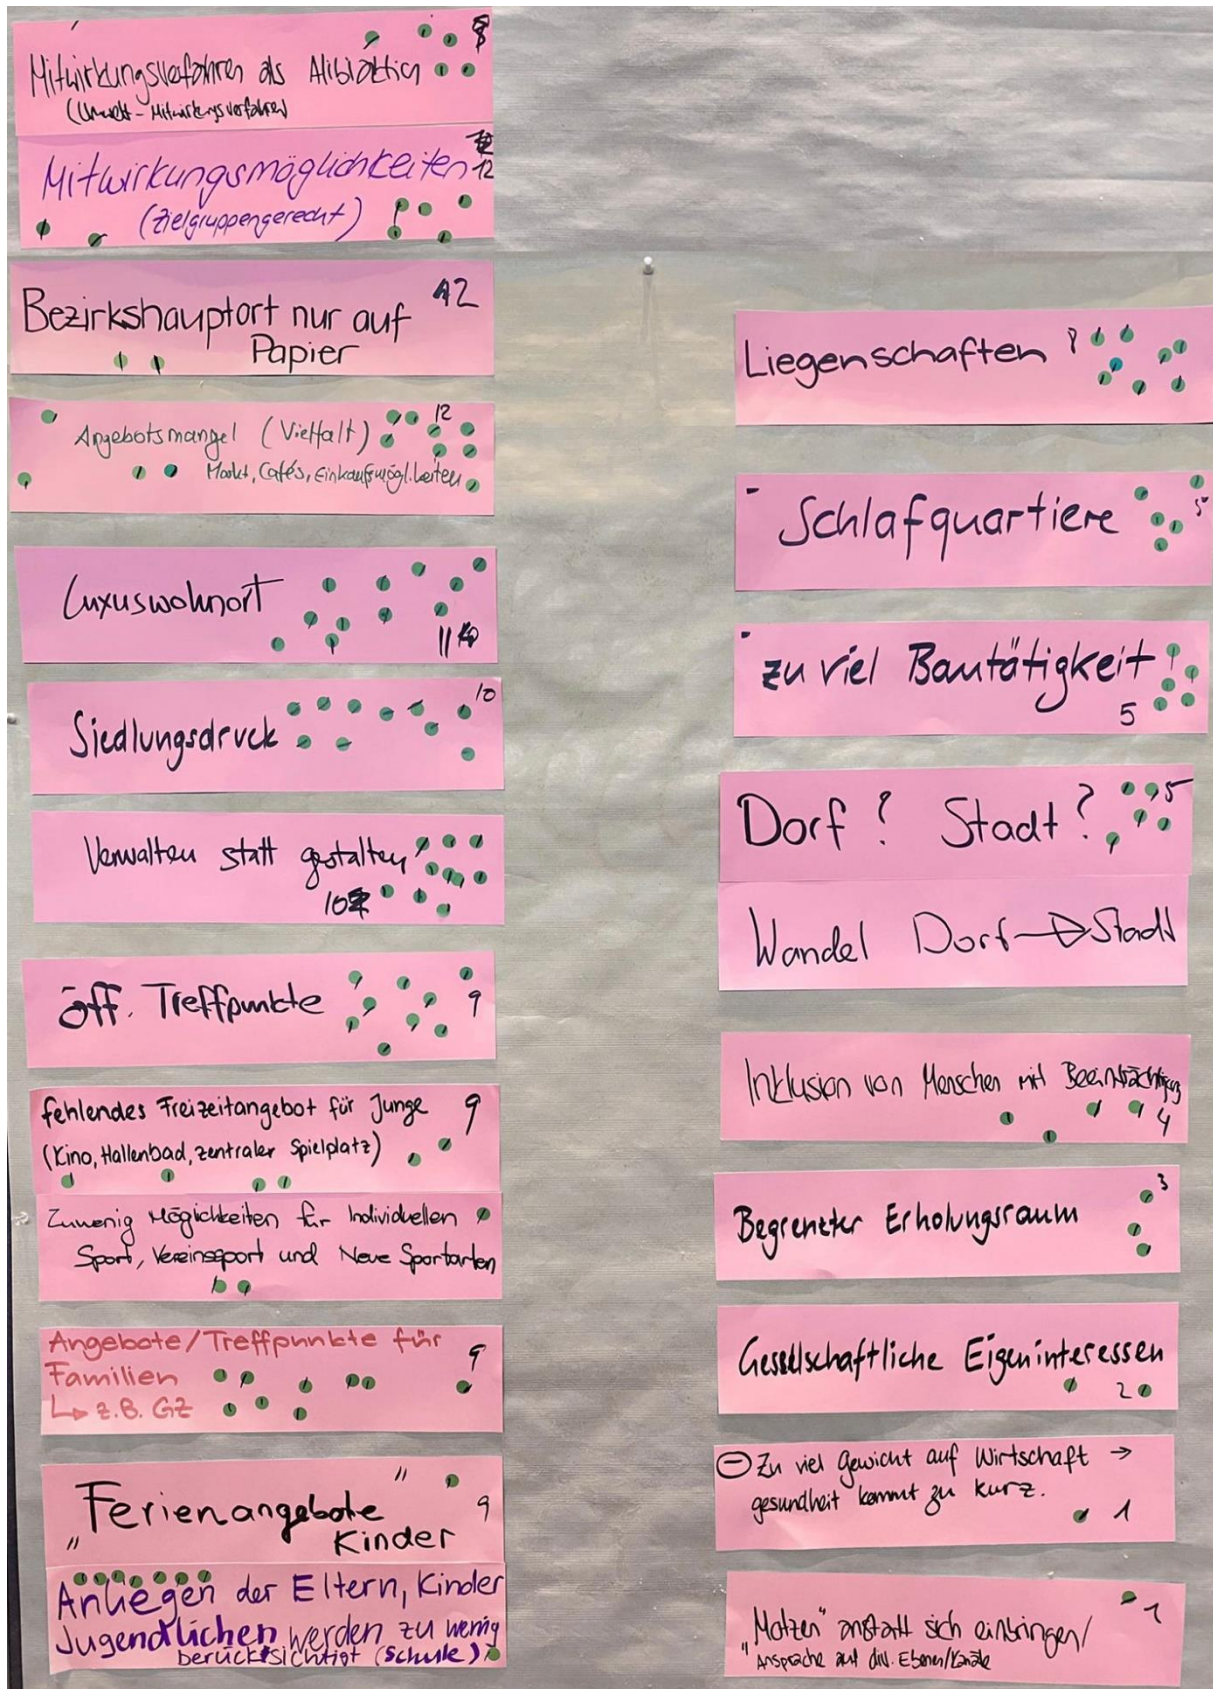 Mitwirkungsverfahren als Alibiaktion
(Umwelt-Mitwirkungsverfahren)
Mitwirkungsmöglichkeiten 12
(Zielgruppengerecht)
Bezirkshauptort nur auf 12
Papier
Angebotsmangel (Vielfalt) 12
Markt, Cafés, Einkaufsmögl.keiten
Luxuswohnort
11
Siedlungsdruck 10
Verwalten statt gestalten
10
öff. Treffpunkte 9
fehlendes Freizeitangebot für Junge 9
(Kino, Hallenbad, zentraler Spielplatz)
Zuwenig Möglichkeiten für Individuellen
Sport, Vereinssport und Neue Sportarten
Angebote/Treffpunkte für 9
Familien
↳ z.B. GZ
"Ferienangebote" 9
Kinder
Anliegen der Eltern, Kinder
Jugendlichen werden zu wenig
berücksichtigt (Schule)
Liegenschaften 8
- Schlafquartiere 5
- zu viel Bautätigkeit
5
Dorf? Stadt? 5
Wandel Dorf → Stadt
Inklusion von Menschen mit Beeinträchtigung
4
Begrenzter Erholungsraum 3
Gesellschaftliche Eigeninteressen
2
⊖ Zu viel Gewicht auf Wirtschaft →
gesundheit kommt zu kurz.
1
"Motzen" anstatt sich einbringen/ 1
Ansprache auf div. Ebenen/Kanäle